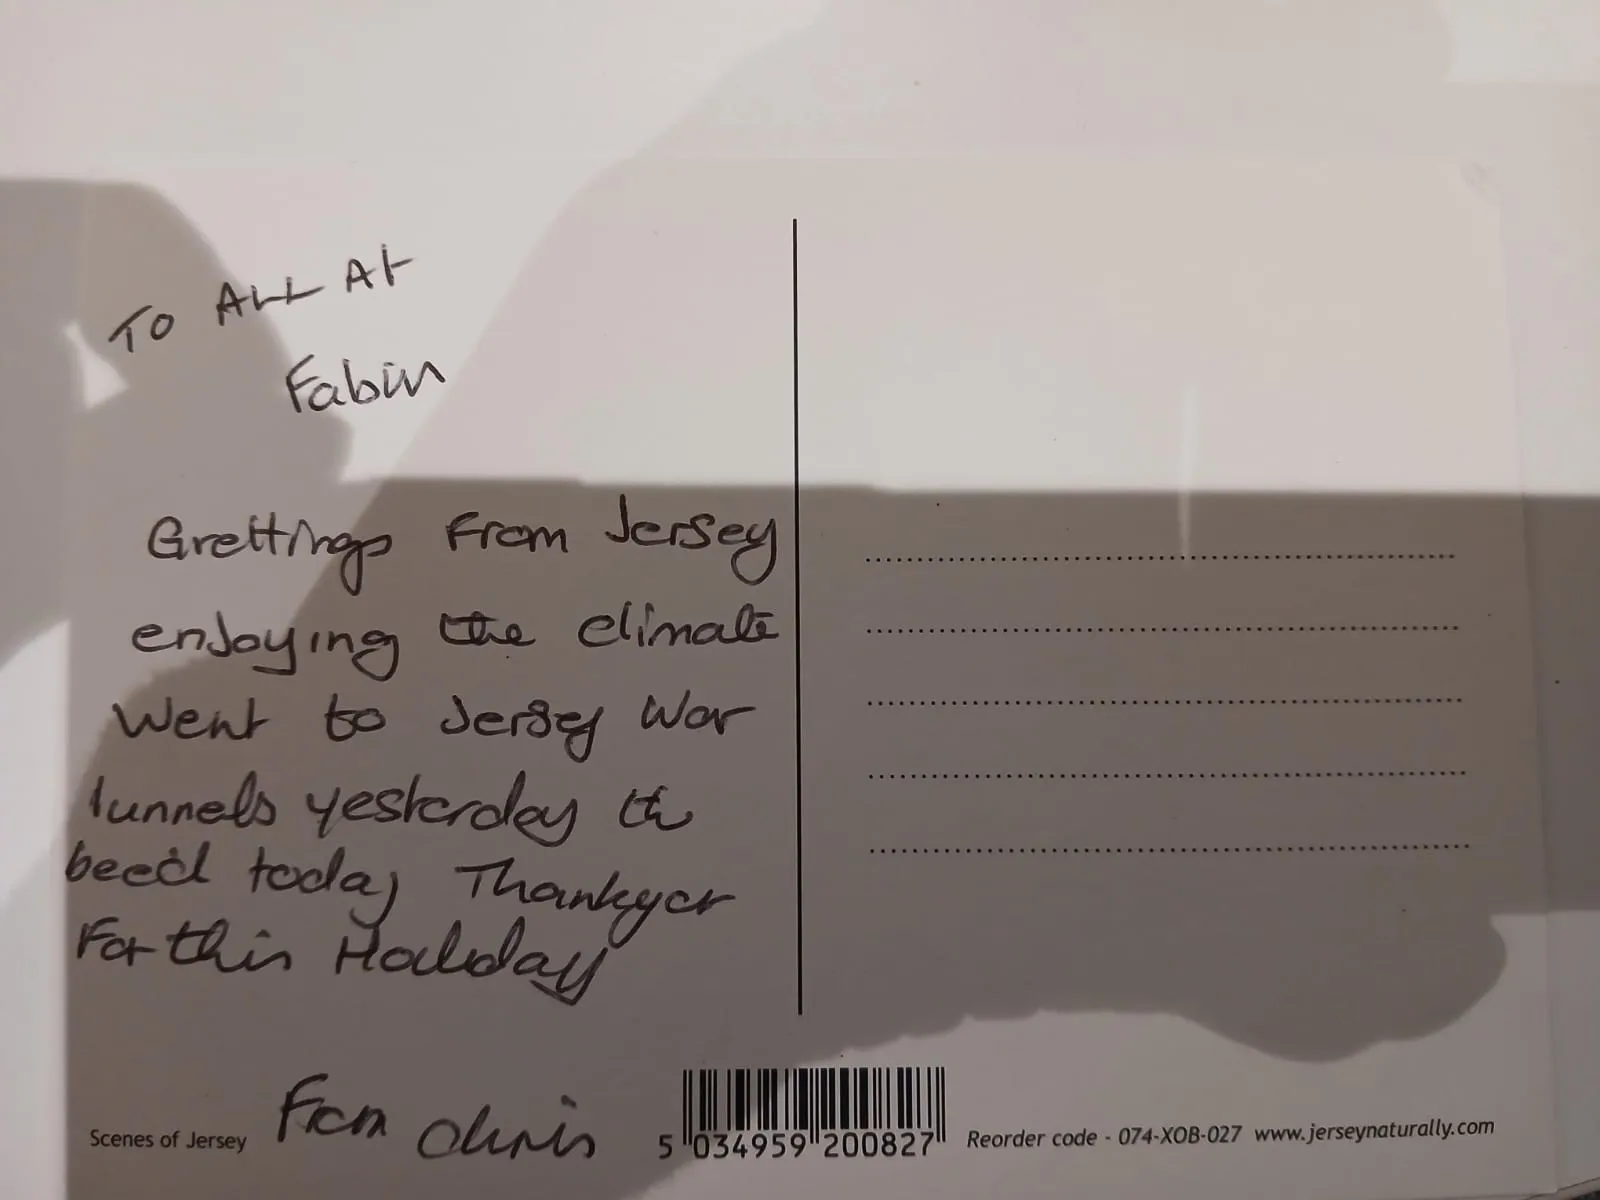 TO ALL At
Fabin
Grettings From Jersey
enjoying the climate
Went to Jersey War
tunnels yesterday the
beech today Thankyou
For this Holiday
From Chris
Scenes of Jersey
5 034959 200827
Reorder code - 074-XOB-027 www.jerseynaturally.com